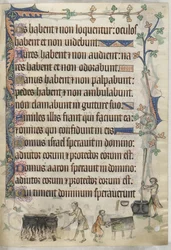 Os habent et non loquentur: oculos
habent et non videbunt.
Aures habent et non audient: na
res habent et non odorabunt.
Manus habent et non palpabunt:
pedes habent et non ambulabunt:
non clamabunt in gutture suo.
Similes illis fiant qui faciunt ea:
et omnes qui confidunt in eis.
Domus israel speravit in domino:
adiutor eorum et protector eorum est.
Domus aaron speravit in domino:
adiutor eorum et protector eorum est.
Qui timent dominum speraverunt